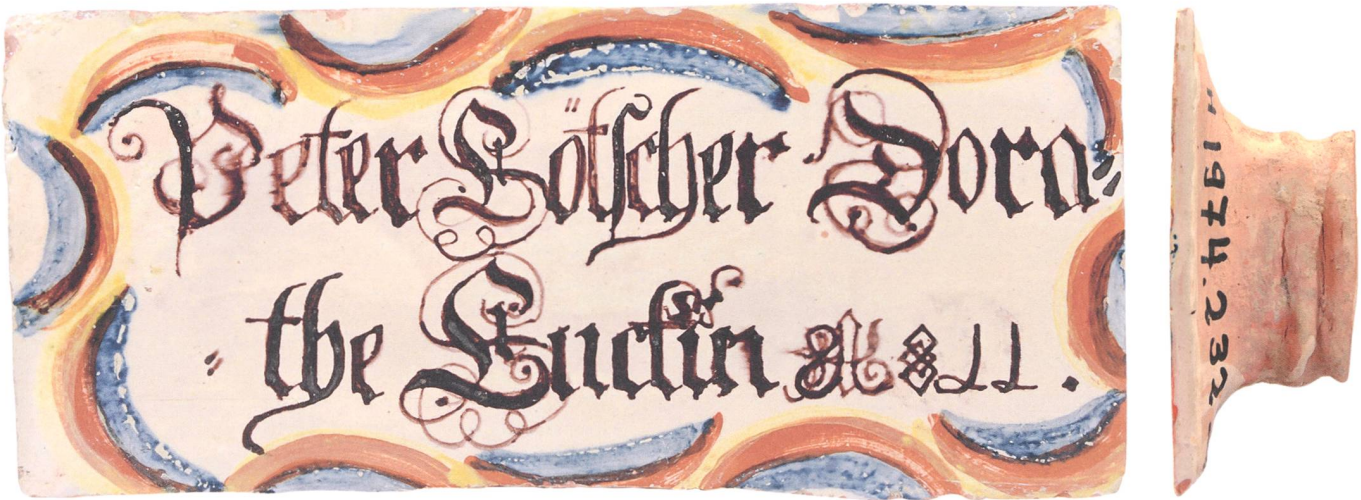 Peter Lötscher Dora⸗
⸗the Lucklin A 811.
1974.232